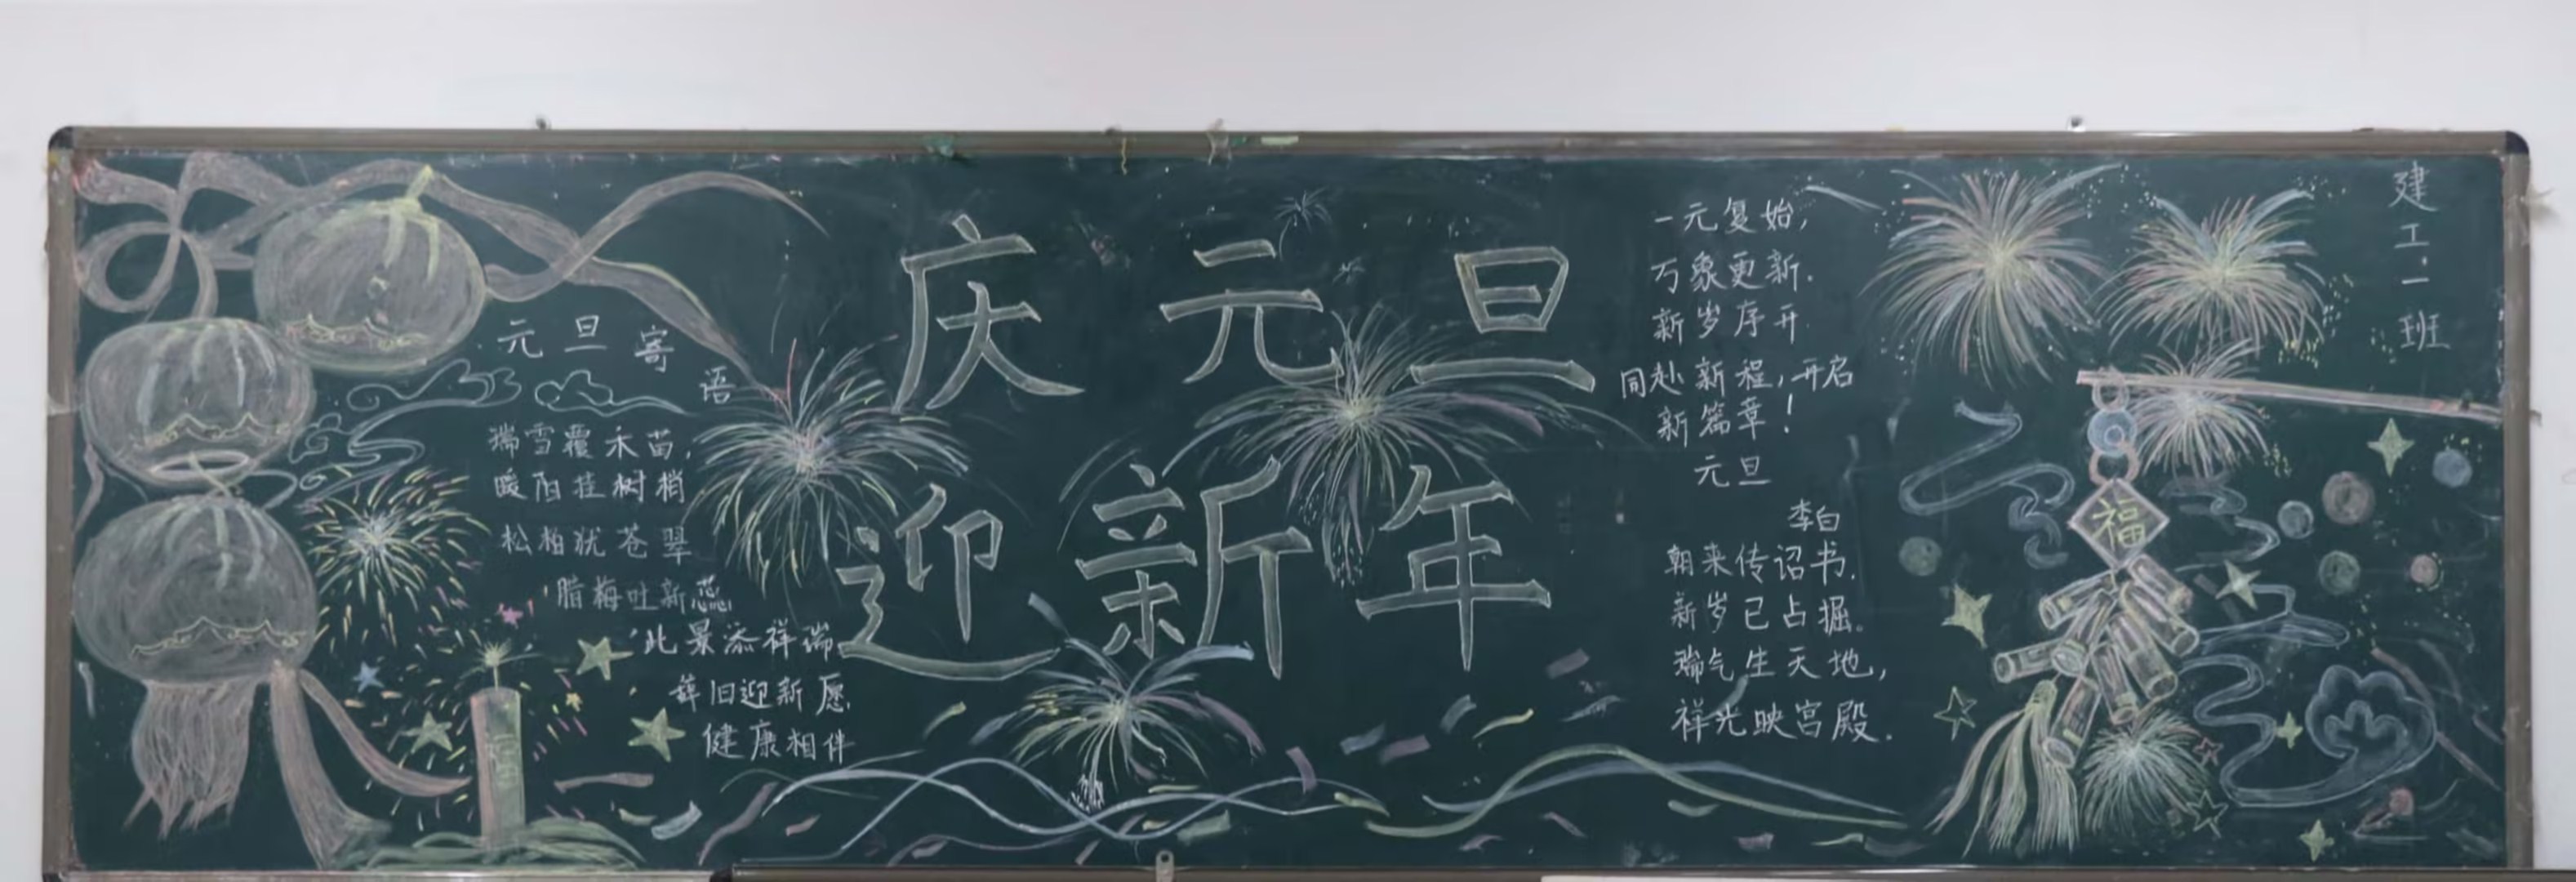 庆元旦
迎新年
元旦寄语
瑞雪覆禾苗,
暖阳挂树梢
松柏犹苍翠
腊梅吐新蕊
此景添祥瑞
辞旧迎新愿
健康相伴
一元复始,
万象更新.
新岁序开
同赴新程,开启
新篇章!
元旦
李白
朝来传诏书.
新岁已占掘。
瑞气生天地,
祥光映宫殿.
福
建工·一班